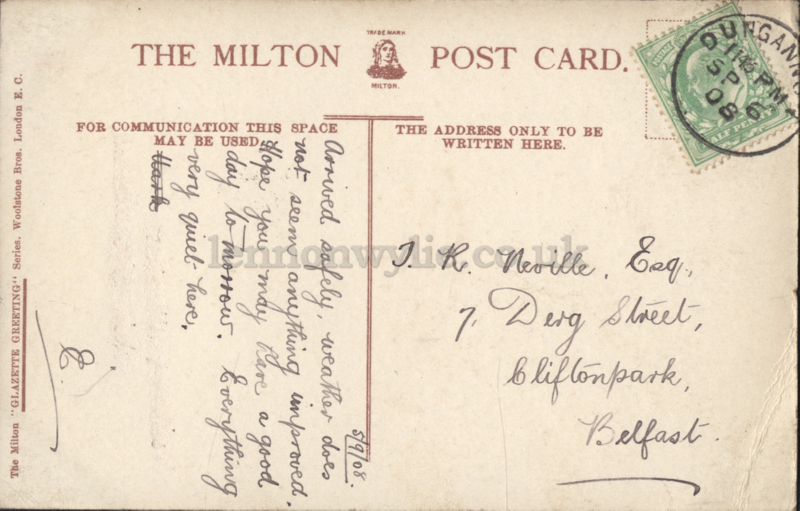 THE MILTON
TRADE MARK
MILTON.
POST CARD.
FOR COMMUNICATION THIS SPACE
MAY BE USED.
THE ADDRESS ONLY TO BE
WRITTEN HERE.
DUNGANN
SP 6
08
HALF PENNY
5/9/08.
Arrived safely, weather does
not seem anything improved.
Hope you may have a good
day to morrow. Everything
very quiet here.
E.
J. R. Neville, Esq,
7, Derg Street,
Cliftonpark,
Belfast.
The Milton "GLAZETTE GREETING" Series. Woolstone Bros. London E. C.
lennonwylie.co.uk